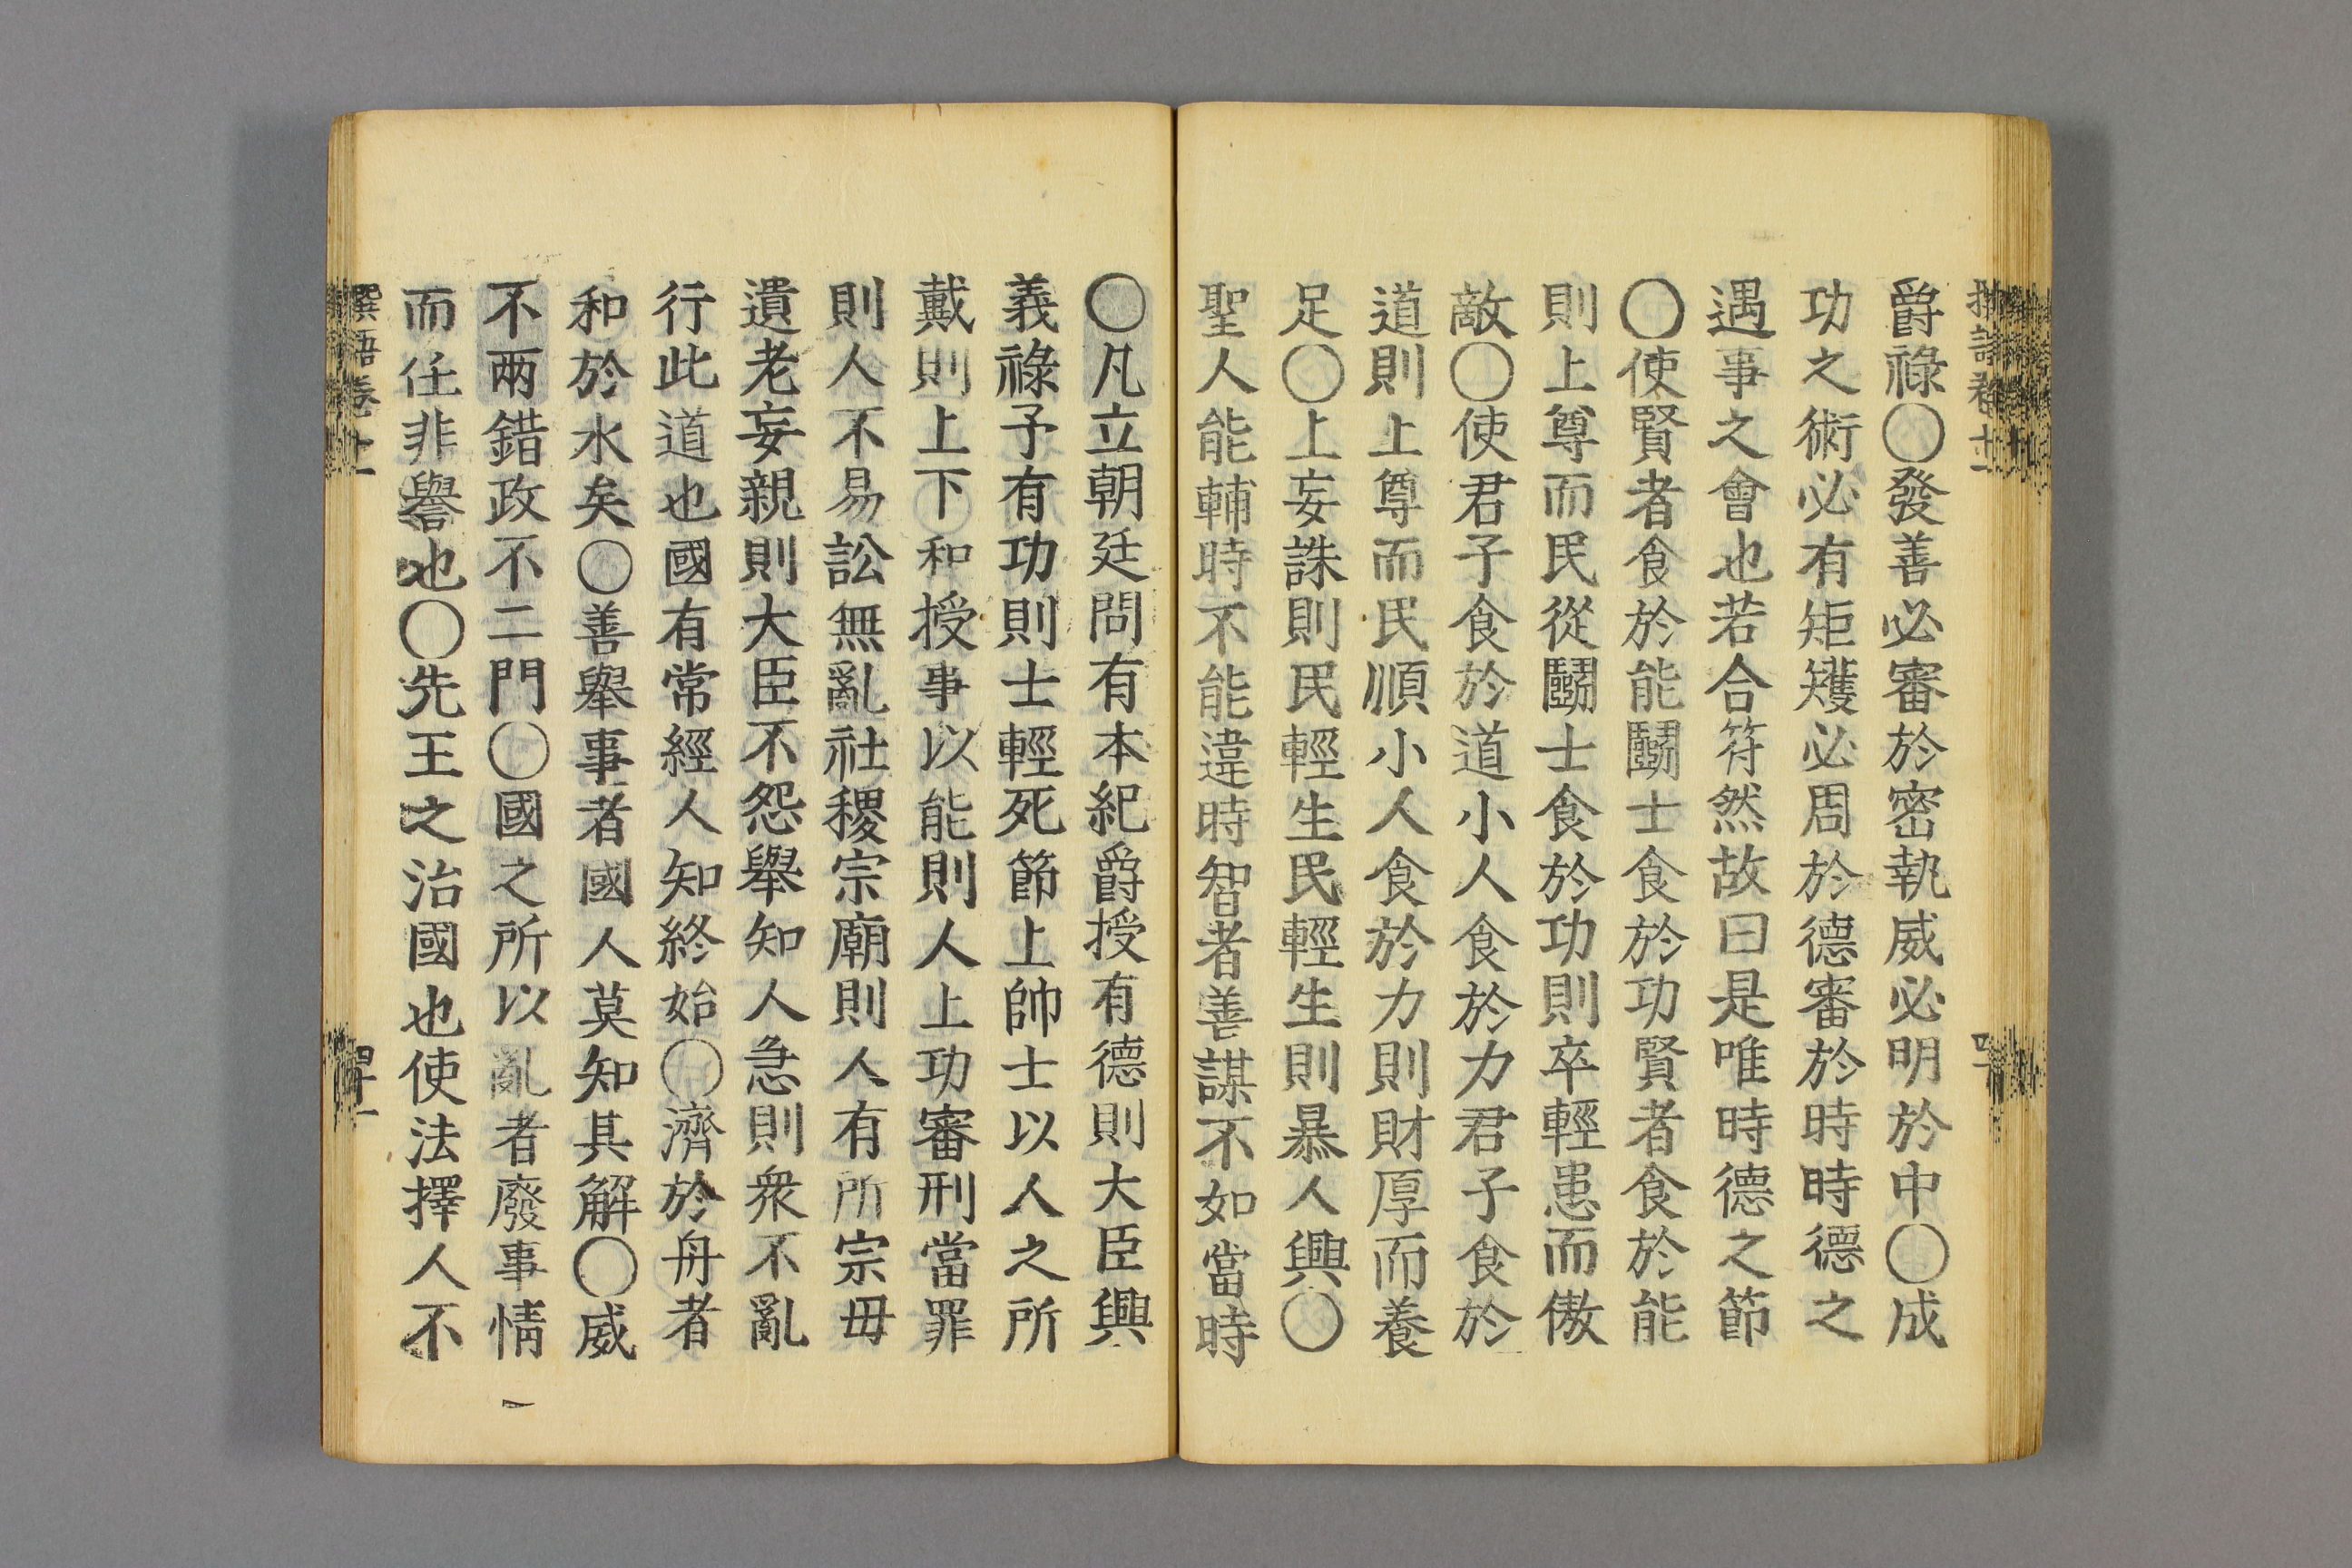 爵祿〇發善必審於密執威必明於中〇成
功之術必有矩矱必周於德審於時時德之
遇事之會也若合符然故曰是唯時德之節
〇使賢者食於能鬭士食於功賢者食於能
則上尊而民從鬭士食於功則卒輕患而傲
敵〇使君子食於道小人食於力君子食於
道則上尊而民順小人食於力則財厚而養
足〇上妄誅則民輕生民輕生則暴人興〇
聖人能輔時不能違時智者善謀不如當時
〇凡立朝廷問有本紀爵授有德則大臣興
義祿予有功則士輕死節上帥士以人之所
戴則上下和授事以能則人上功審刑當罪
則人不易訟無亂社稷宗廟則人有所宗毋
遺老妄親則大臣不怨舉知人急則衆不亂
行此道也國有常經人知終始〇濟於舟者
和於水矣〇善舉事者國人莫知其解〇威
不兩錯政不二門〇國之所以亂者廢事情
而任非譽也〇先王之治國也使法擇人不